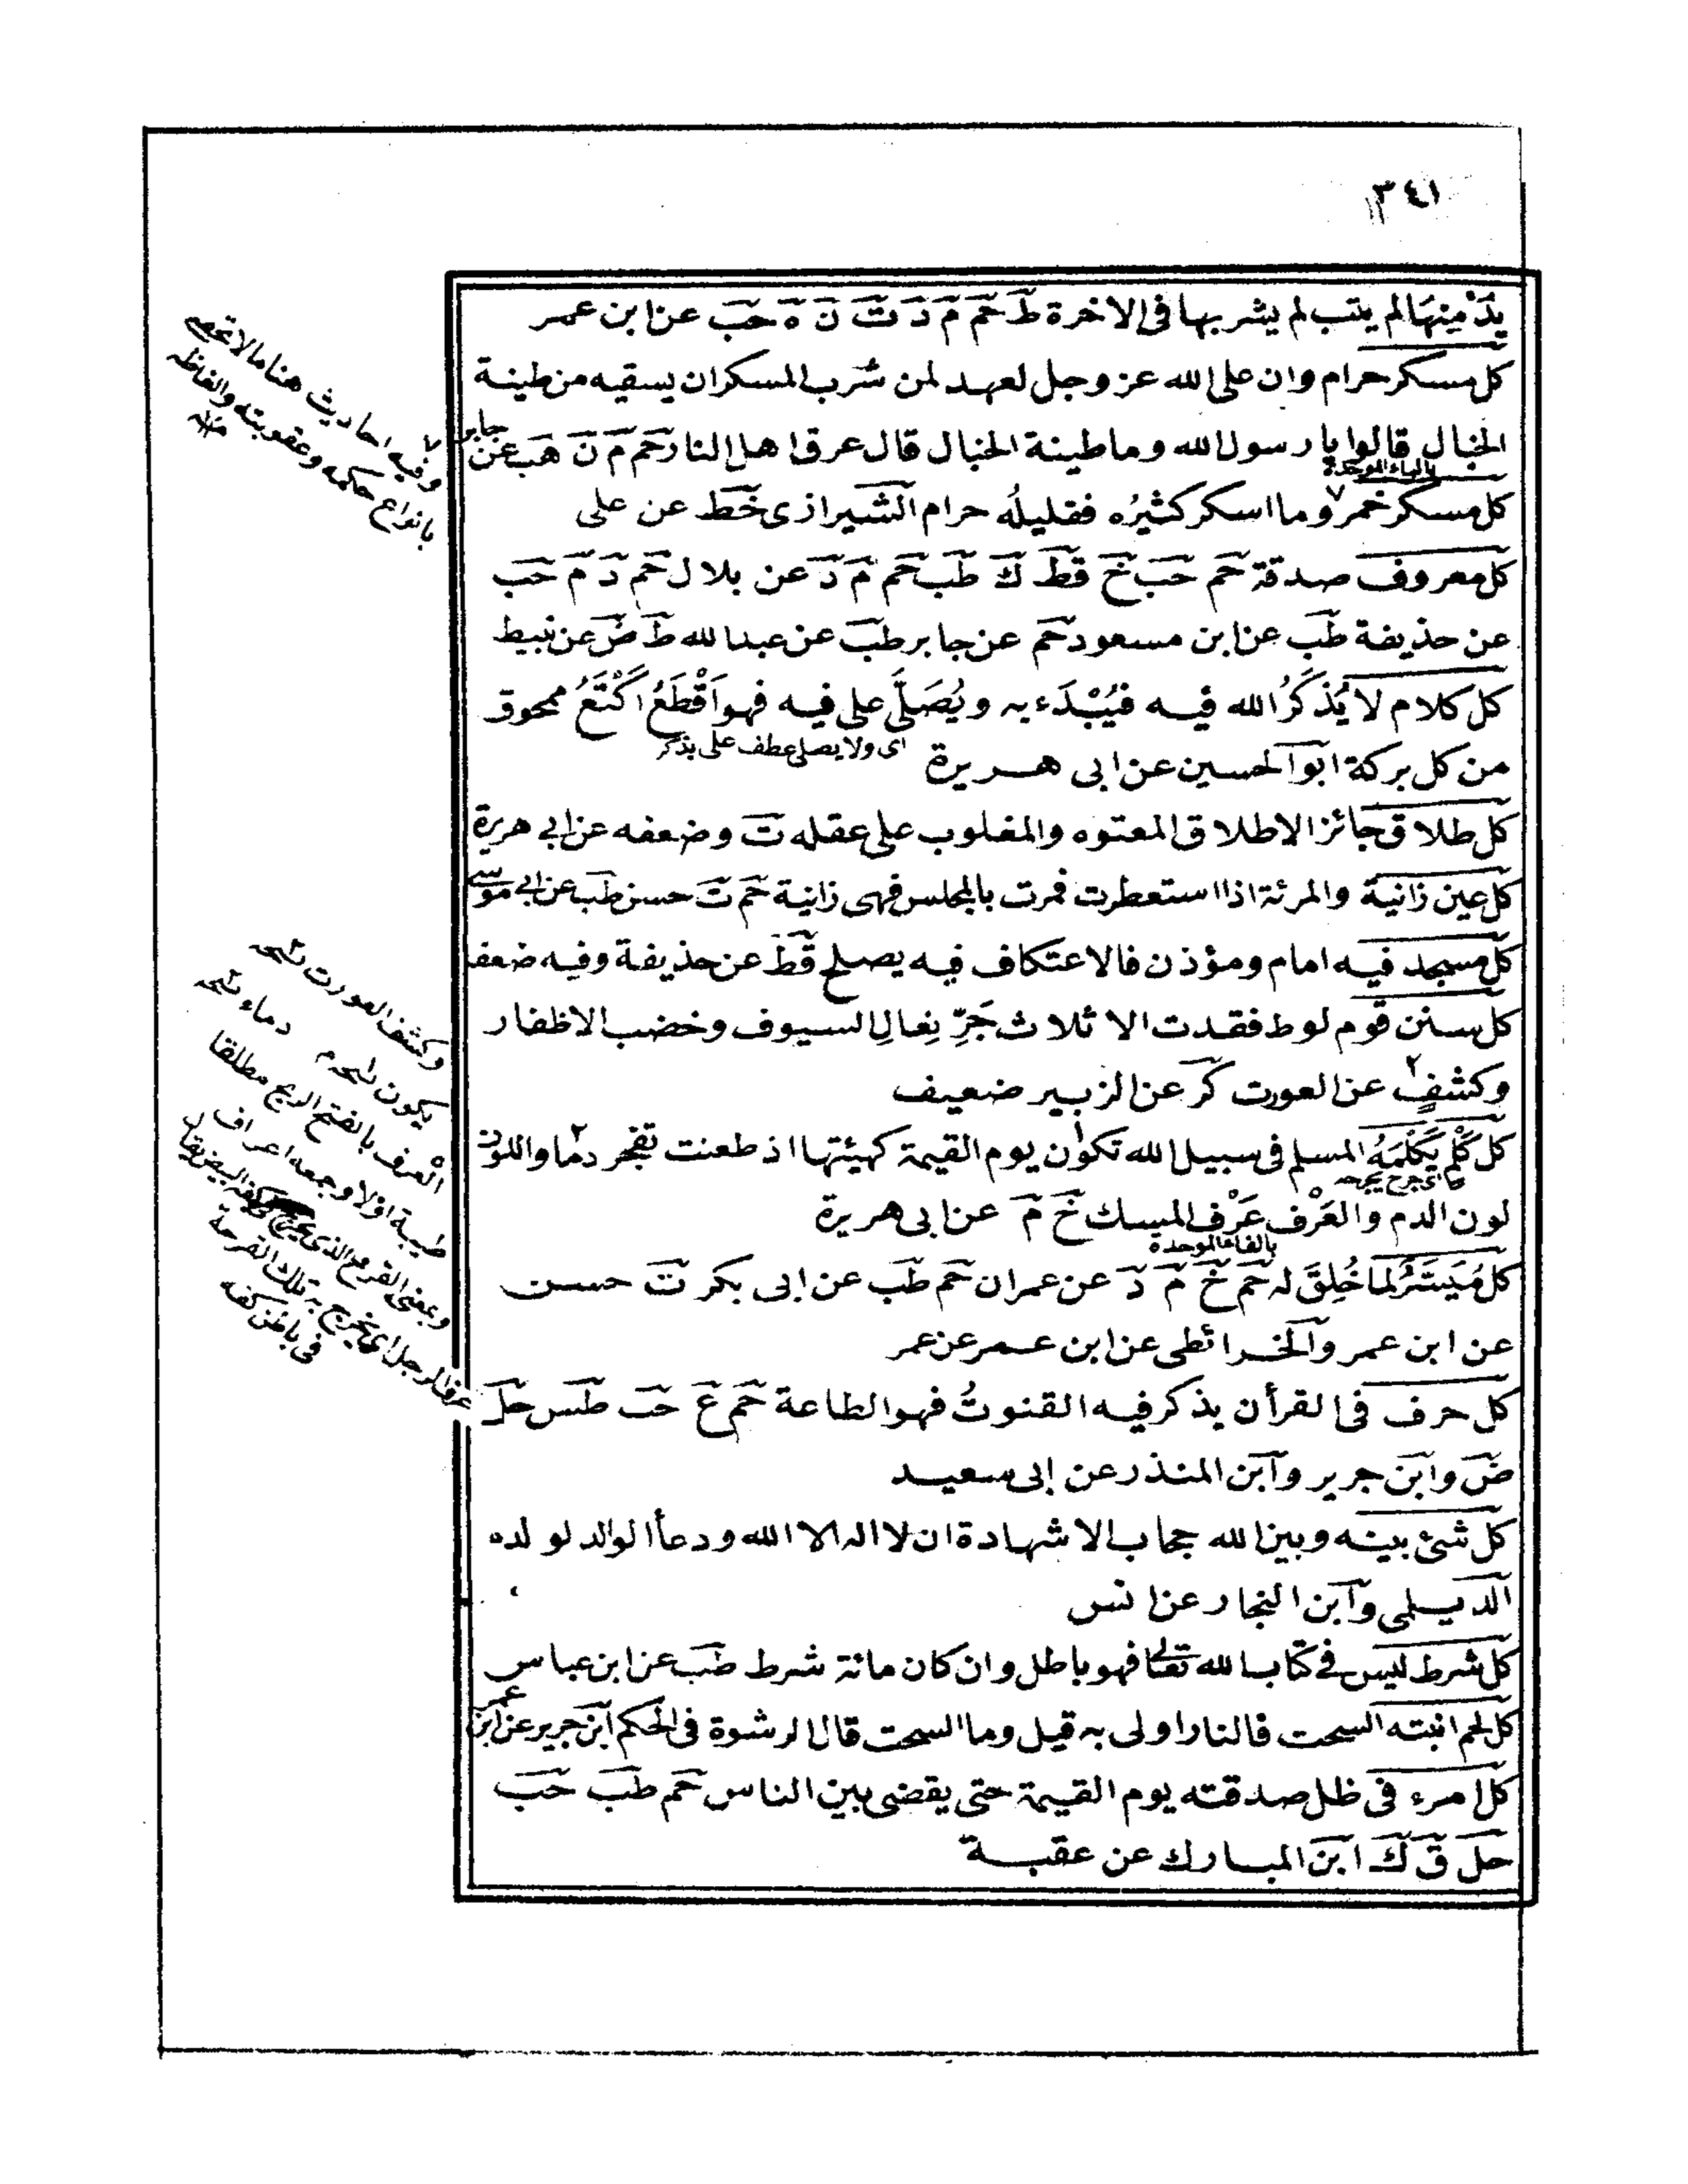 ٣٤١
يُدْمِنِهَا لم يتب لم يشربها فى الاخرة ط حم م د ت ن ه حب عن ابن عمر
كل مسكر حرام وان على الله عز وجل لعهد لمن شرب المسكران يسقيه من طينة
الخبال قالوا يا رسول الله وما طينة الخبال قال عرق اهل النار حم م ن هب عن جابر
بالباء الموحدة
كل مسكر خمر وما اسكر كثيرُه فقليلُه حرام الشيرازى خط عن على
كل معروف صدقة حم حب خ قط ك طب حم م د عن بلال حم د م حب
عن حذيفة طب عن ابن مسعود حم عن جابر طب عن عبدالله ط ض عن نبيط
كل كلام لا يُذْكَرُ الله فيه فيُبْدَء به ويُصَلَّى على فيه فهو اَقْطَعُ اَكْتَعُ ممحوق
من كل بركة ابو الحسين عن ابى هريرة
اى ولا يصلى عطف على يذكر
كل طلاق جائز الا طلاق المعتوه والمغلوب على عقله ت وضعفه عن ابي هريرة
كل عين زانية والمرئة اذا استعطرت فمرت بالمجلس فهى زانية حم ت حسن طب عن ابي موسى
كل مسجد فيه امام ومؤذن فالاعتكاف فيه يصلح قط عن حذيفة وفيه ضعف
كل سنن قوم لوط فقدت الا ثلاث جَرِّ نِعَالِ السيوف وخضب الاظفار
وكشفٍ عن العورت كر عن الزبير ضعيف
كل كَلْمٍ يُكْلَمُهُ المسلم فى سبيل الله تكون يوم القيمة كهيئتها اذ طعنت تفجر دما واللون
اى جرح يجرحه
لون الدم والعَرْف عَرْف المسك خ م عن ابى هريرة
بالفاء الموحدة
كل مُيَسَّرٌ لما خُلِقَ له حم خ م د عن عمران حم طب عن ابى بكر ت حسن
عن ابن عمر والخرائطى عن ابن عمر عن عمر
كل حرف فى القرأن يذكر فيه القنوتُ فهو الطاعة حم ع حب طس حل
ض وابن جرير وابن المنذر عن ابى سعيد
كل شئ بينه وبين الله حجاب الا شهادة ان لا اله الا الله ودعأ الوالد لولده
الديلمى وابن النجار عن انس
كل شرط ليس فى كتاب الله تعالى فهو باطل وان كان مائة شرط طب عن ابن عباس
كل لحم انبته السحت فالنار اولى به قيل وما السحت قال الرشوة فى الحكم ابن جرير عن ابن عمر
كل امرء فى ظل صدقته يوم القيمة حتى يقضى بين الناس حم طب حب
حل ق ك ابن المبارك عن عقبة
وفيه احاديث هنا مالا تحصى
بانواع حكمه وعقوبته والفاظه
منه
وكشف العورت نسخه
يكون نسخه م دماء نسخه
العرف بالفتح الريح مطلقا
طيبة اولا وجمعه اعراف
عرف الرجل اى يخرج به تلك القرحة
فى باطن كفه